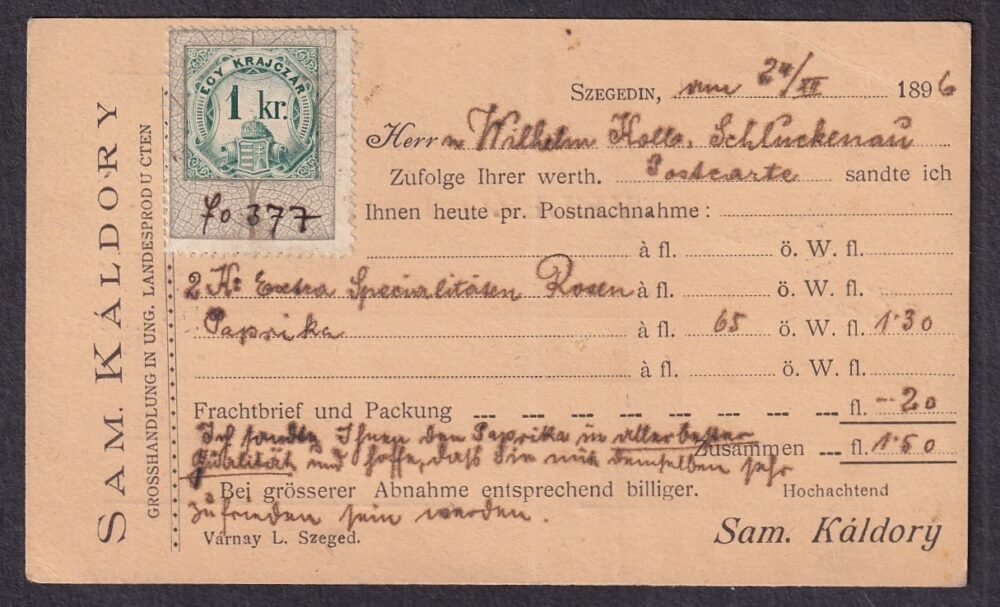 SAM. KÁLDORY
GROSSHANDLUNG IN UNG. LANDESPRODUCTEN
EGY KRAJCZÁR
1 kr.
fo 377
SZEGEDIN, am 24/XII 1896
Herrn Wilhelm Holl, Schluckenau
Zufolge Ihrer werth. Postcarte sandte ich
Ihnen heute pr. Postnachnahme:
à fl. ö. W. fl.
2 Ko Extra Specialitäten Rosen à fl. ö. W. fl.
Paprika à fl. 65 ö. W. fl. 1·30
à fl. ö. W. fl.
Frachtbrief und Packung fl. -20
Ich sandte Ihnen den Paprika in allerbester
Zusammen fl. 1·50
Qualität und hoffe, daß Sie mit demselben sehr
Bei grösserer Abnahme entsprechend billiger. Hochachtend
zufrieden sein werden.
Várnay L. Szeged. Sam. Káldory